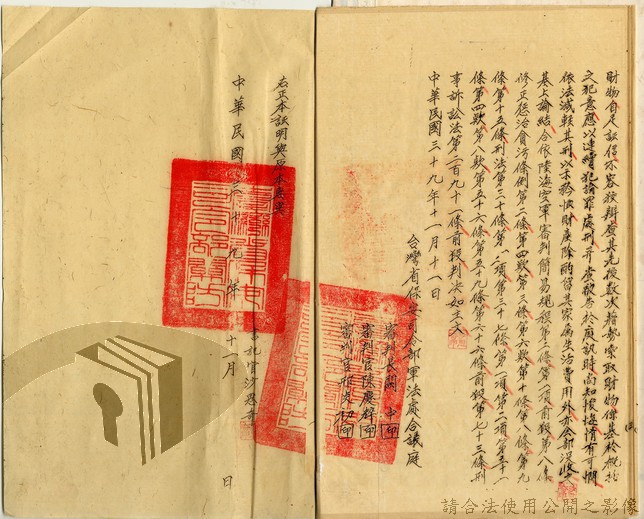 財物自足認信不容狡辯查其先後數次藉勢索取財物係基於概括
之犯意應以連續犯論罪處刑并查被告於庭訊時尚知懊悔情有可憫
依法減輕其刑以示矜恤財產除酌留其家屬生活費用外亦全部沒收
基上論結合依陸海空軍審判簡易規程第二條第一項前段第八條
修正懲治貪污條例第二條第四款第三條第六款第十條第八條第九
條第十五條刑法第三十條第二項第三十七條第一項第二項第五十一
條第四款第八款第五十六條第五十九條第六十六條前段第七十三條刑
事訴訟法第二百九十一條前段判決如主文
中華民國三十九年十一月十八日
台灣省保安司令部軍法處合議庭
審判長周
審判官陳慶粹印
審判官邢炎初印
右正本證明與原本無異
中華民國三十九年十一月 日
書記官沙恩
請合法使用公開之影像